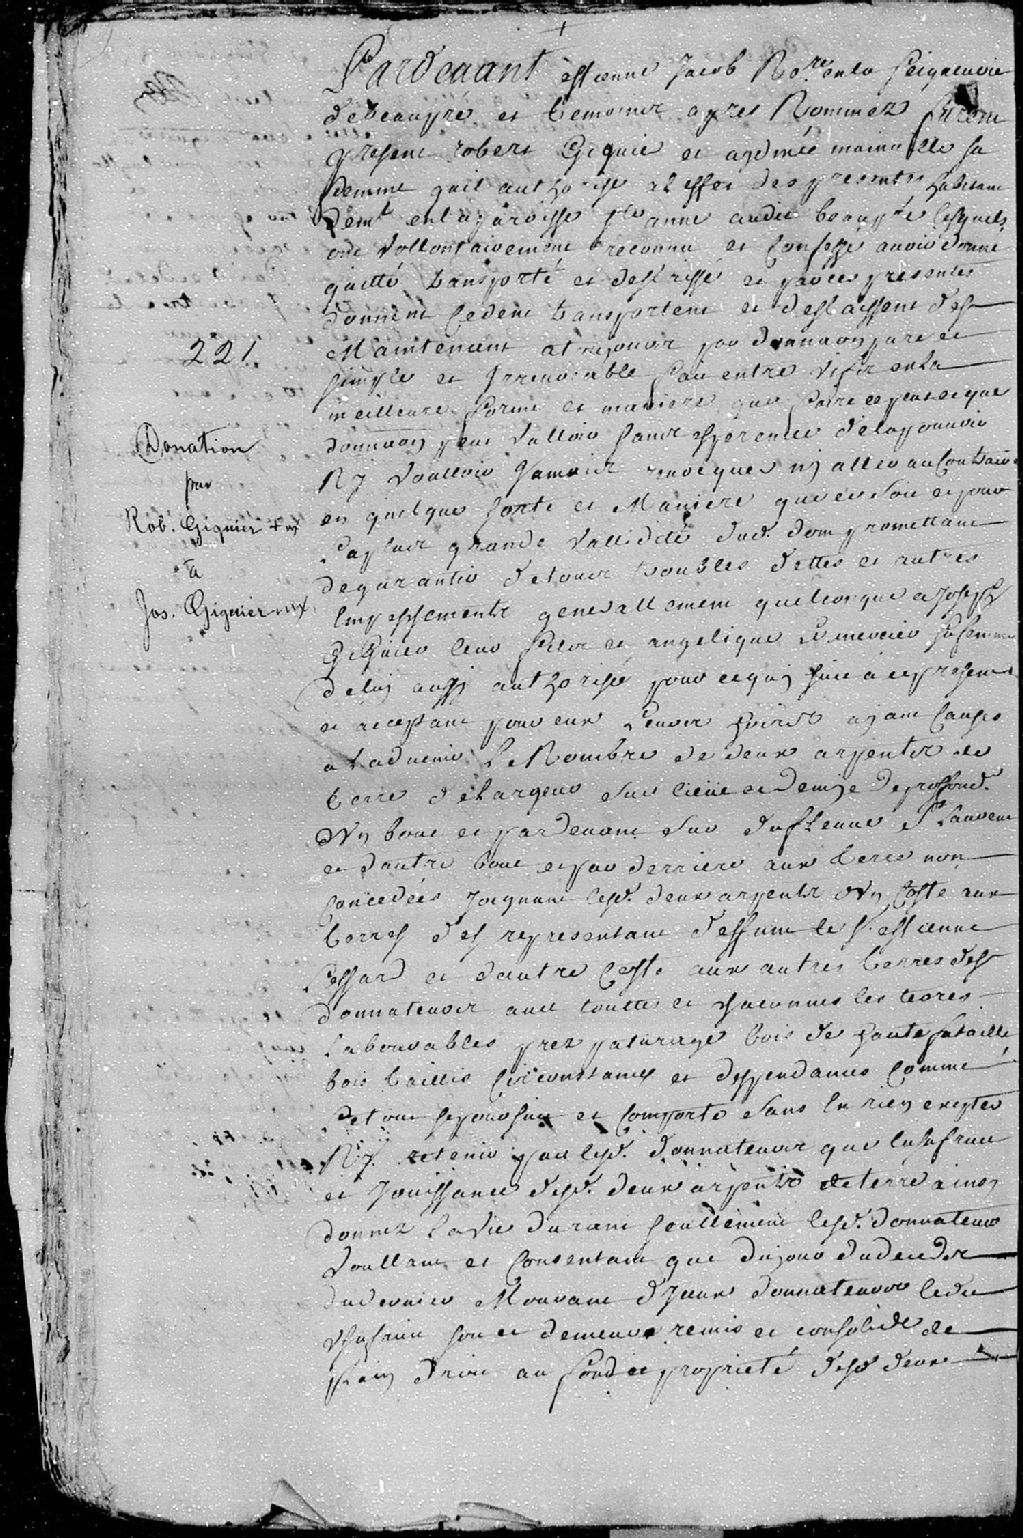 Pardevant estienne Jacob Nore en la Seigneurie
de beaupre et temoins apres Nommez furent
present robert Giguie et aydmée mainville sa
femme quil authorise a leffet des presentes habitant
demt en la paroisse Ste anne audit beaupré lesquels
ont vollontairement reconnu et confessé avoir donné
quitté transporté et deslaissé et par ces presentes
donnent cedent transportent et deslaissent des
Maintenant et a toujours par donnaon pure et
simple et Irrevocable faite entre vifs en la
meilleure forme et maniere que faire ce peut et que
donnaon peut valloir sans esperences de la pouvoir
Ny voulloir Jamais revoequer ny aller au Contraire
en quelque sorte et Maniere que ce soit et pour
la plus grande vallidité dud. dom promettant
de garantir de tous troubles dettes et autres
Empeschements generallement quelconque a Joseph
Giguier leur fils et angelique mercier sa femme
de luy aussy authorisé pour ce qui suit a ce present
et acceptant pour eux leurs hoirs ayant causes
a l'advenir Le Nombre de deux arpents de
terre de largeur sur lieüe et demye de proffond.
d'un bout et par devant sur du fleuve St Laurent
et d'autre bout et par derriere aux terres non
concedées Joignant lesd. deux arpents d'un Costé aux
terres des representant deffunt le Sr estienne
lessard et dautre Costé aux autres terres desd
donnateurs avec touttes et chacunnes les terres
labourables prez paturage bois de haute futaille
bois taillis circonstances et deppendances Comme
le tout se poursuit et comporte sans en rien excepter
Ny retenir par lesd. donnateurs que lusufruit
et Jouissance desd. deux arpents de terre ainsy
donnez la vie durant seullement lesd. donnateurs
voullant et Consentant que du jour du deceds
du dernier Mourant d'Iceux donnateurs ledit
usufruit soit et demeure remis et consolidé de
plain droit au fond et proprieté desd deux
221.
Donation
par
Rob. Giguier & ux
à
Jos. Giguier & ux